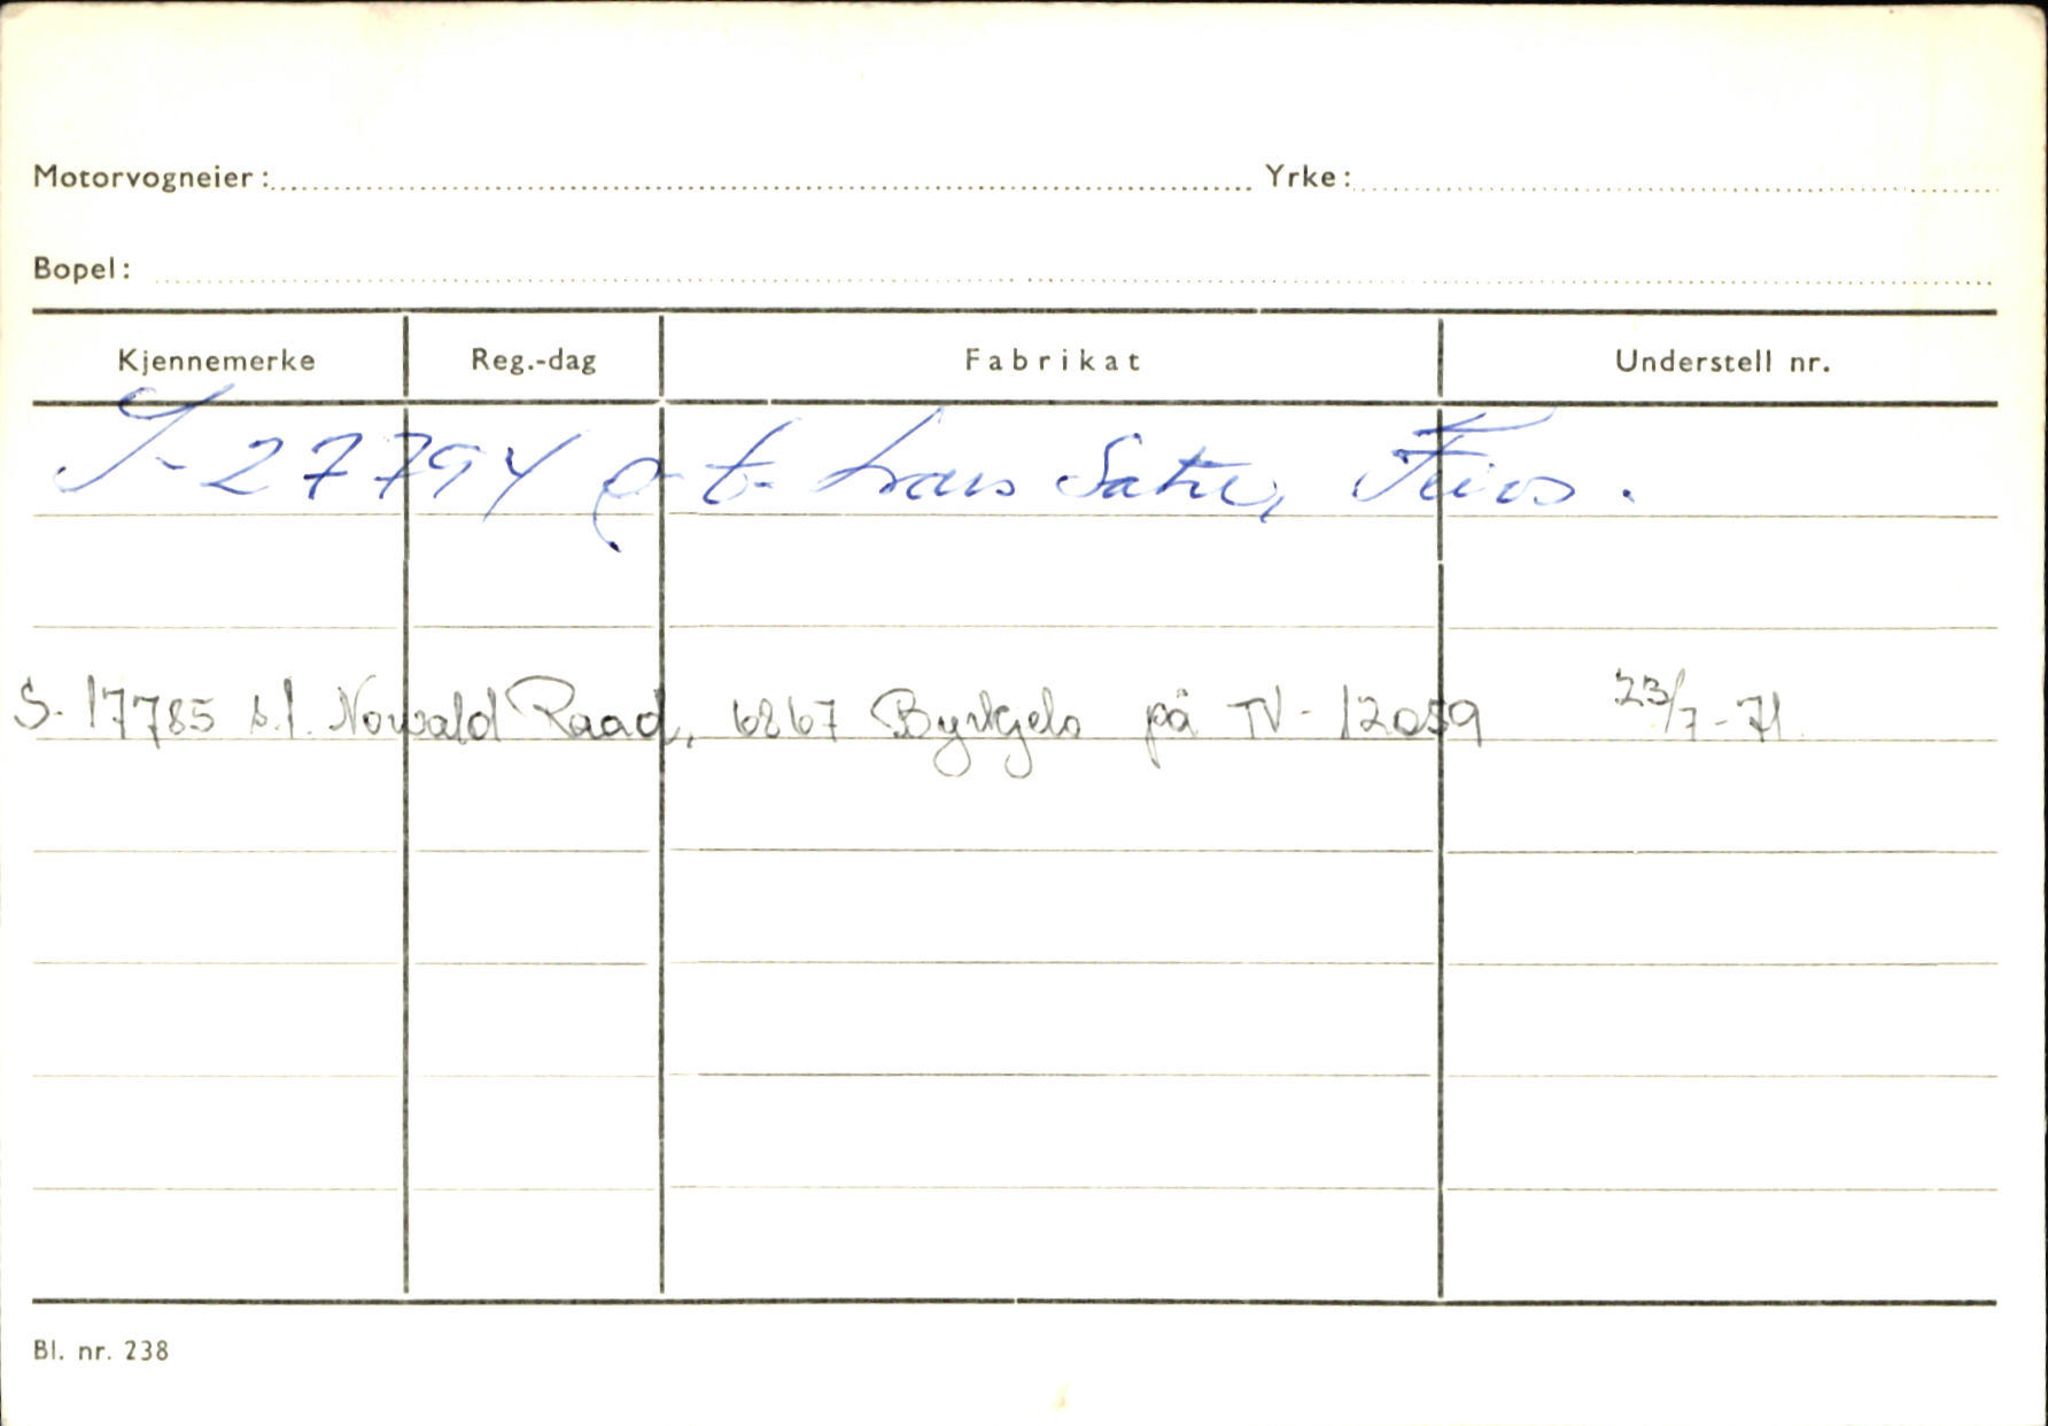 Motorvogneier: Yrke:
Bopel:
Kjennemerke Reg.-dag Fabrikat Understell nr.
S-27794 o. t. Lars Sætre, Feios.
S-17785 s.l. Norvald Raad, 6867 Byrkjelo på TV-12059 23/7-71.
Bl. nr. 238